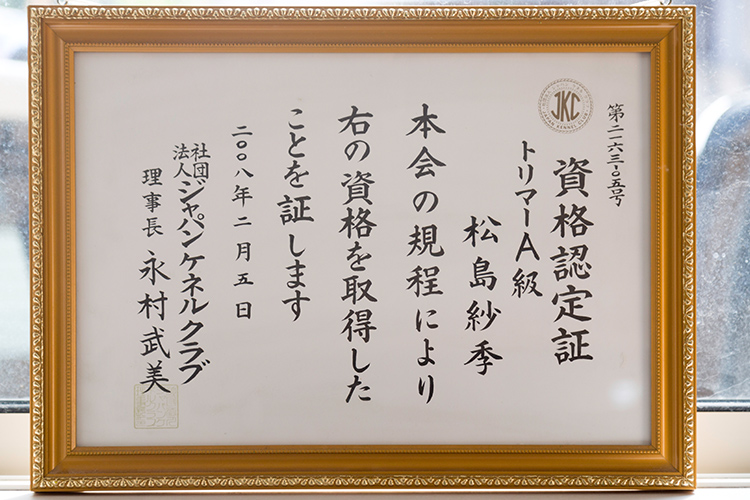 第二一六三〇五号
JKC
JAPAN KENNEL CLUB
資格認定証
トリマーA級
松島紗季
本会の規程により
右の資格を取得した
ことを証します
二〇〇八年二月五日
社団法人ジャパンケネルクラブ
理事長 永村武美